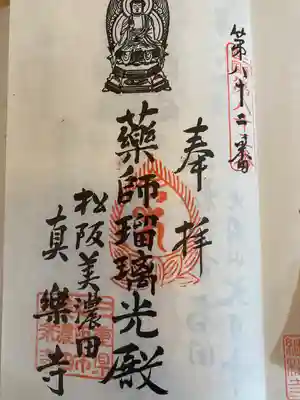 第八十二番
奉拝
薬師瑠璃光殿
松阪美濃田
真楽寺